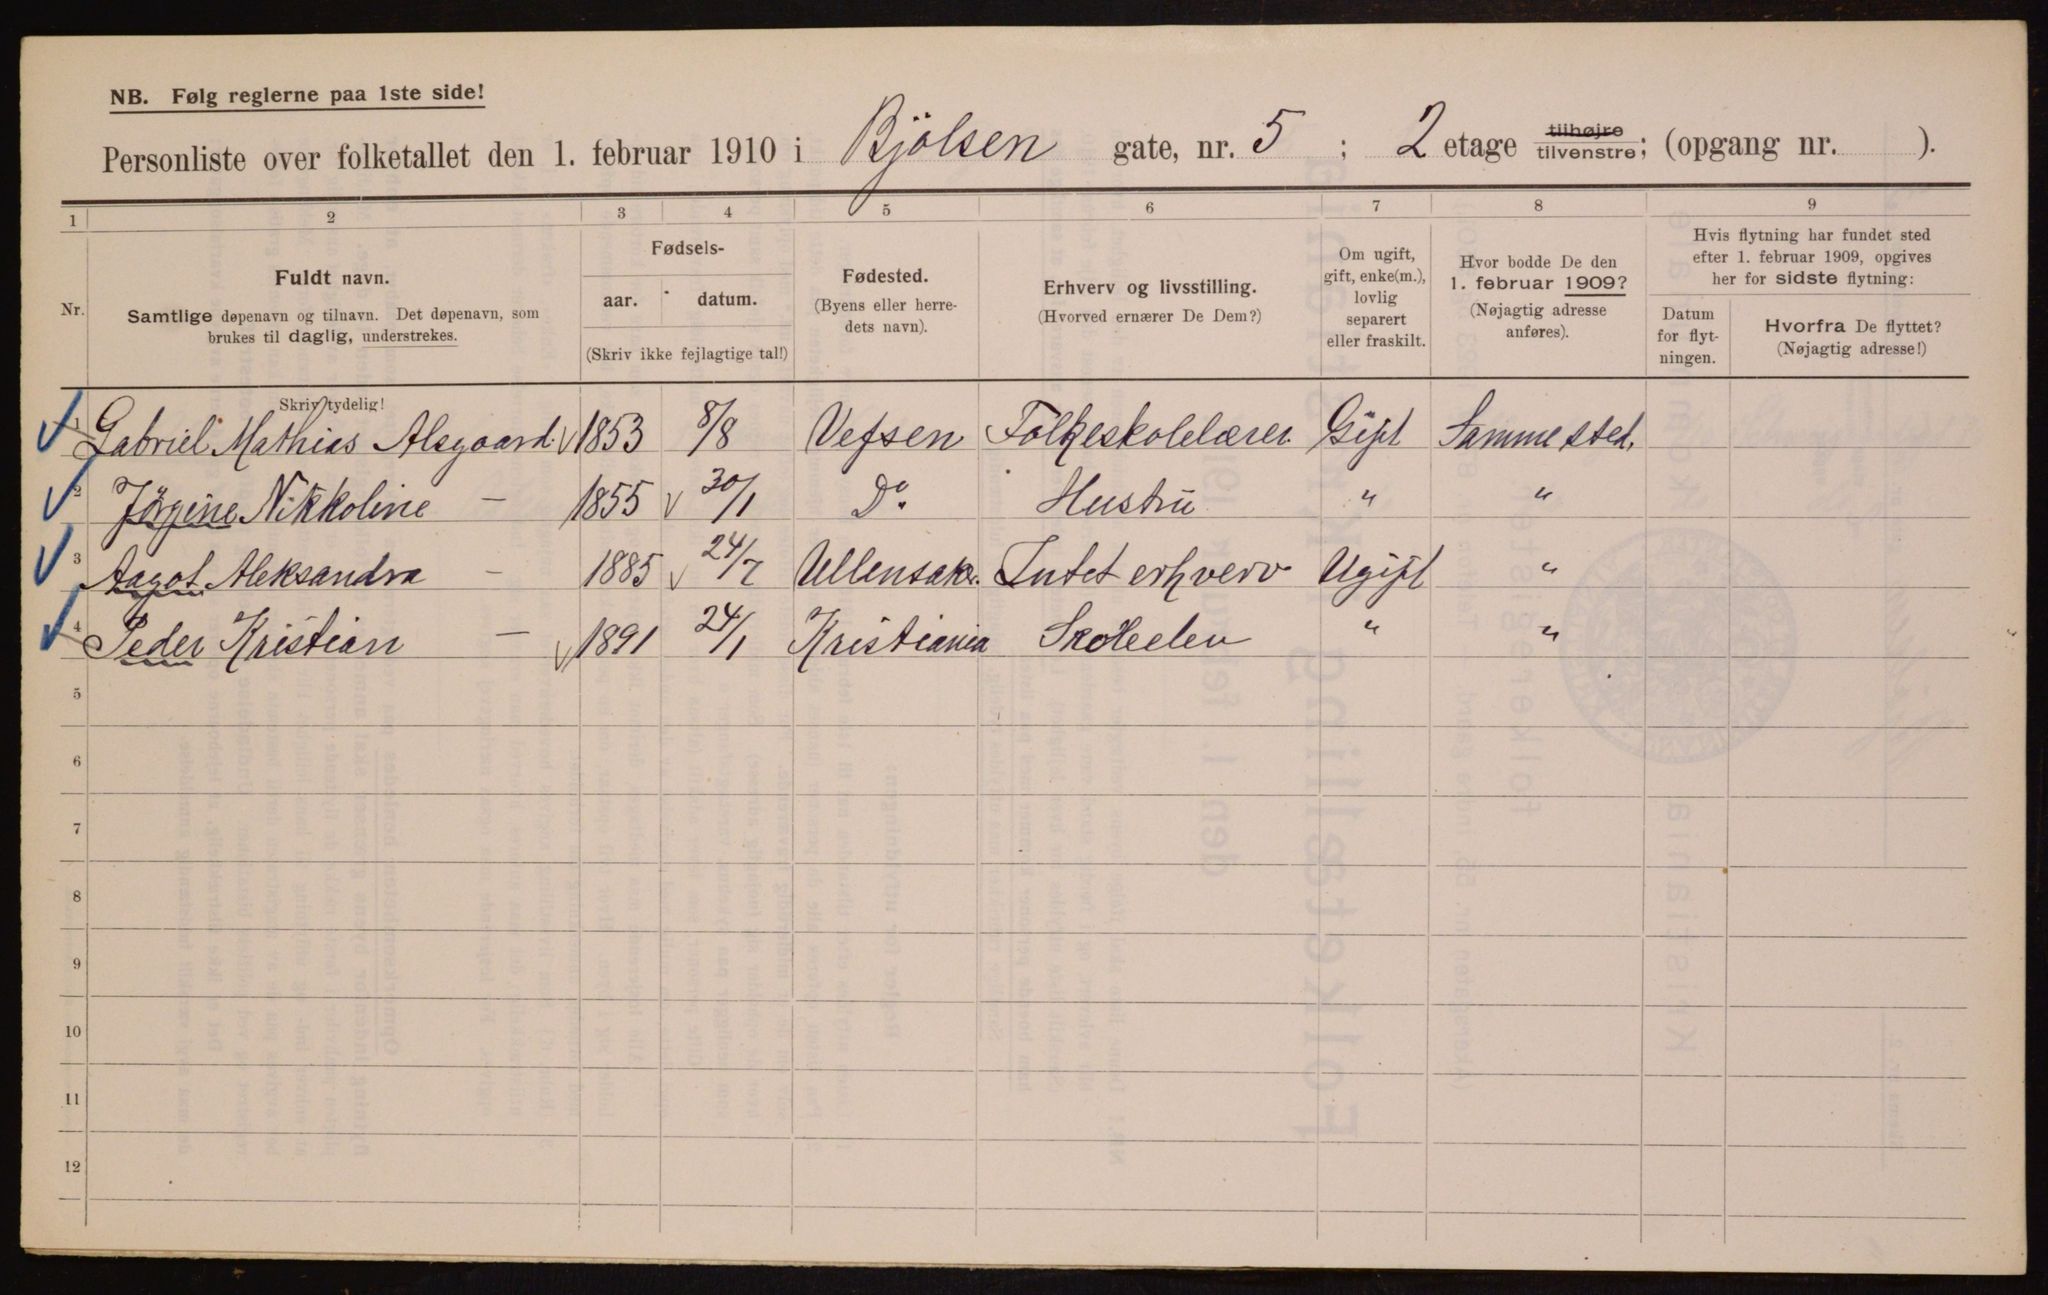 NB. Følg reglerne paa 1ste side!
Personliste over folketallet den 1. februar 1910 i Bjølsen gate, nr. 5 ; 2 etage tilhøjre tilvenstre; (opgang nr. ).
1 2 3 4 5 6 7 8 9
Nr.
Fuldt navn.
Samtlige døpenavn og tilnavn. Det døpenavn, som
brukes til daglig, understrekes.
Fødsels-
aar. datum.
(Skriv ikke fejlagtige tal!)
Fødested.
(Byens eller herre-
dets navn).
Erhverv og livsstilling.
(Hvorved ernærer De Dem?)
Om ugift,
gift, enke(m.),
lovlig
separert
eller fraskilt.
Hvor bodde De den
1. februar 1909?
(Nøjagtig adresse
anføres).
Hvis flytning har fundet sted
efter 1. februar 1909, opgives
her for sidste flytning:
Datum
for flyt-
ningen.
Hvorfra De flyttet?
(Nøjagtig adresse!)
Skriv tydelig!
1 Gabriel Mathias Alsgaard. 1853 8/8 Vefsen Folkeskolelærer Gift Samme sted.
2 Jörgine Nikkoline — 1855 30/1 Do. Hustru " "
3 Aagot Aleksandra — 1885 24/7 Ullensaker. Intet erhverv Ugift "
4 Peder Kristian — 1891 24/1 Kristiania Skoleelev " "
5
6
7
8
9
10
11
12